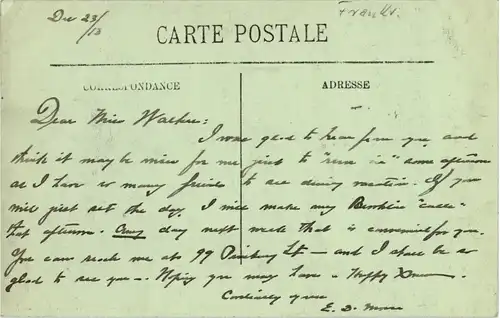 Dec 23/13
CARTE POSTALE
CORRESPONDANCE
ADRESSE
Dear Miss Walker:
I was glad to hear from you and
think it may be nicer for me just to "run in" some afternoon
as I have so many friends to see during vacation. If you
will just set the day, I will make my Brookline "calls"
that afternoon. Any day next week that is convenient for you.
You can reach me at 99 Pinckney St – and I shall be so
glad to see you – Hoping you may have a Happy Xmas –
Cordially yours
E. D.